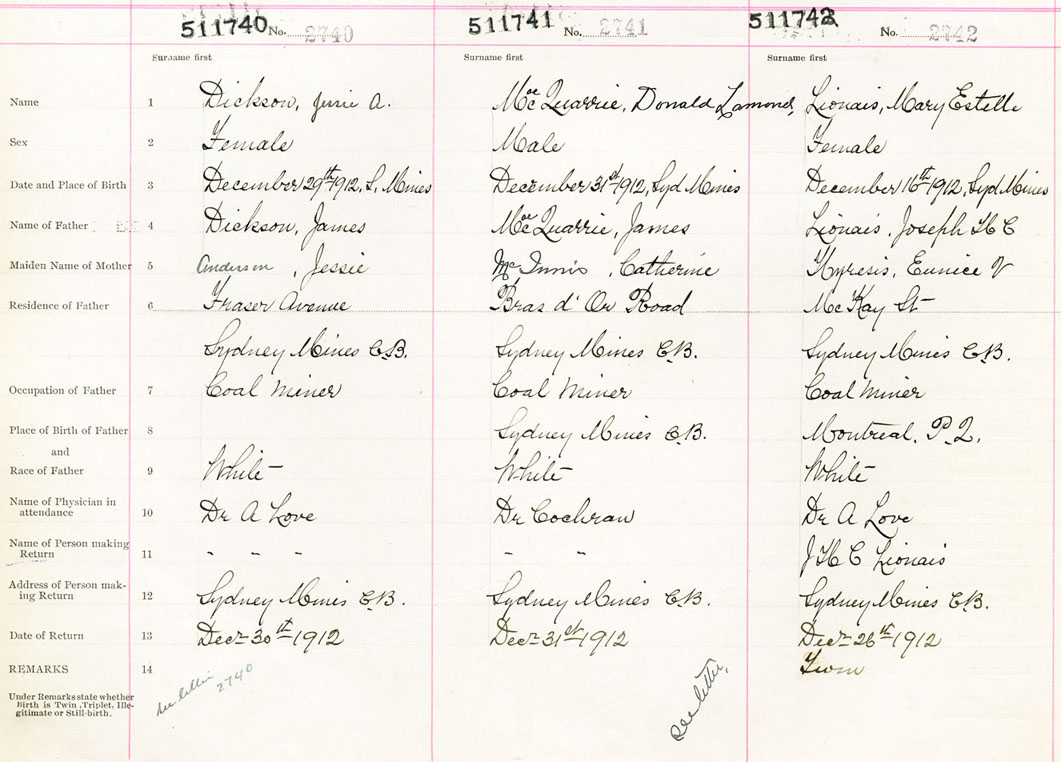 511740 No. 2740 511741 No. 2741 511742 No. 2742
Surname first Surname first Surname first
Name 1 Dickson, Jessie A. MacQuarrie, Donald Lamond, Lionais, Mary Estelle
Sex 2 Female Male Female
Date and Place of Birth 3 December 29th 1912, S. Mines December 31st 1912, Syd Mines December 16th 1912, Syd Mines
Name of Father 4 Dickson, James MacQuarrie, James Lionais, Joseph H C
Maiden Name of Mother 5 Anderson, Jessie McInnis, Catherine Eunice V
Residence of Father 6 Fraser Avenue Bras d'Or Road McKay St
Sydney Mines C.B. Sydney Mines C.B. Sydney Mines C.B.
Occupation of Father 7 Coal Miner Coal Miner Coal Miner
Place of Birth of Father 8 Sydney Mines C.B. Montreal. P.Q.
and
Race of Father 9 White White White
Name of Physician in
attendance 10 Dr A Love Dr Cochran Dr A Love
Name of Person making
Return 11 " " " " " J H C Lionais
Address of Person mak-
ing Return 12 Sydney Mines C.B. Sydney Mines C.B. Sydney Mines C.B.
Date of Return 13 Decr 30th 1912 Decr 31st 1912 Decr 26th 1912
REMARKS 14 Twin
see letter 2740 see letter.
Under Remarks state whether
Birth is Twin, Triplet, Ille-
gitimate or Still-birth.